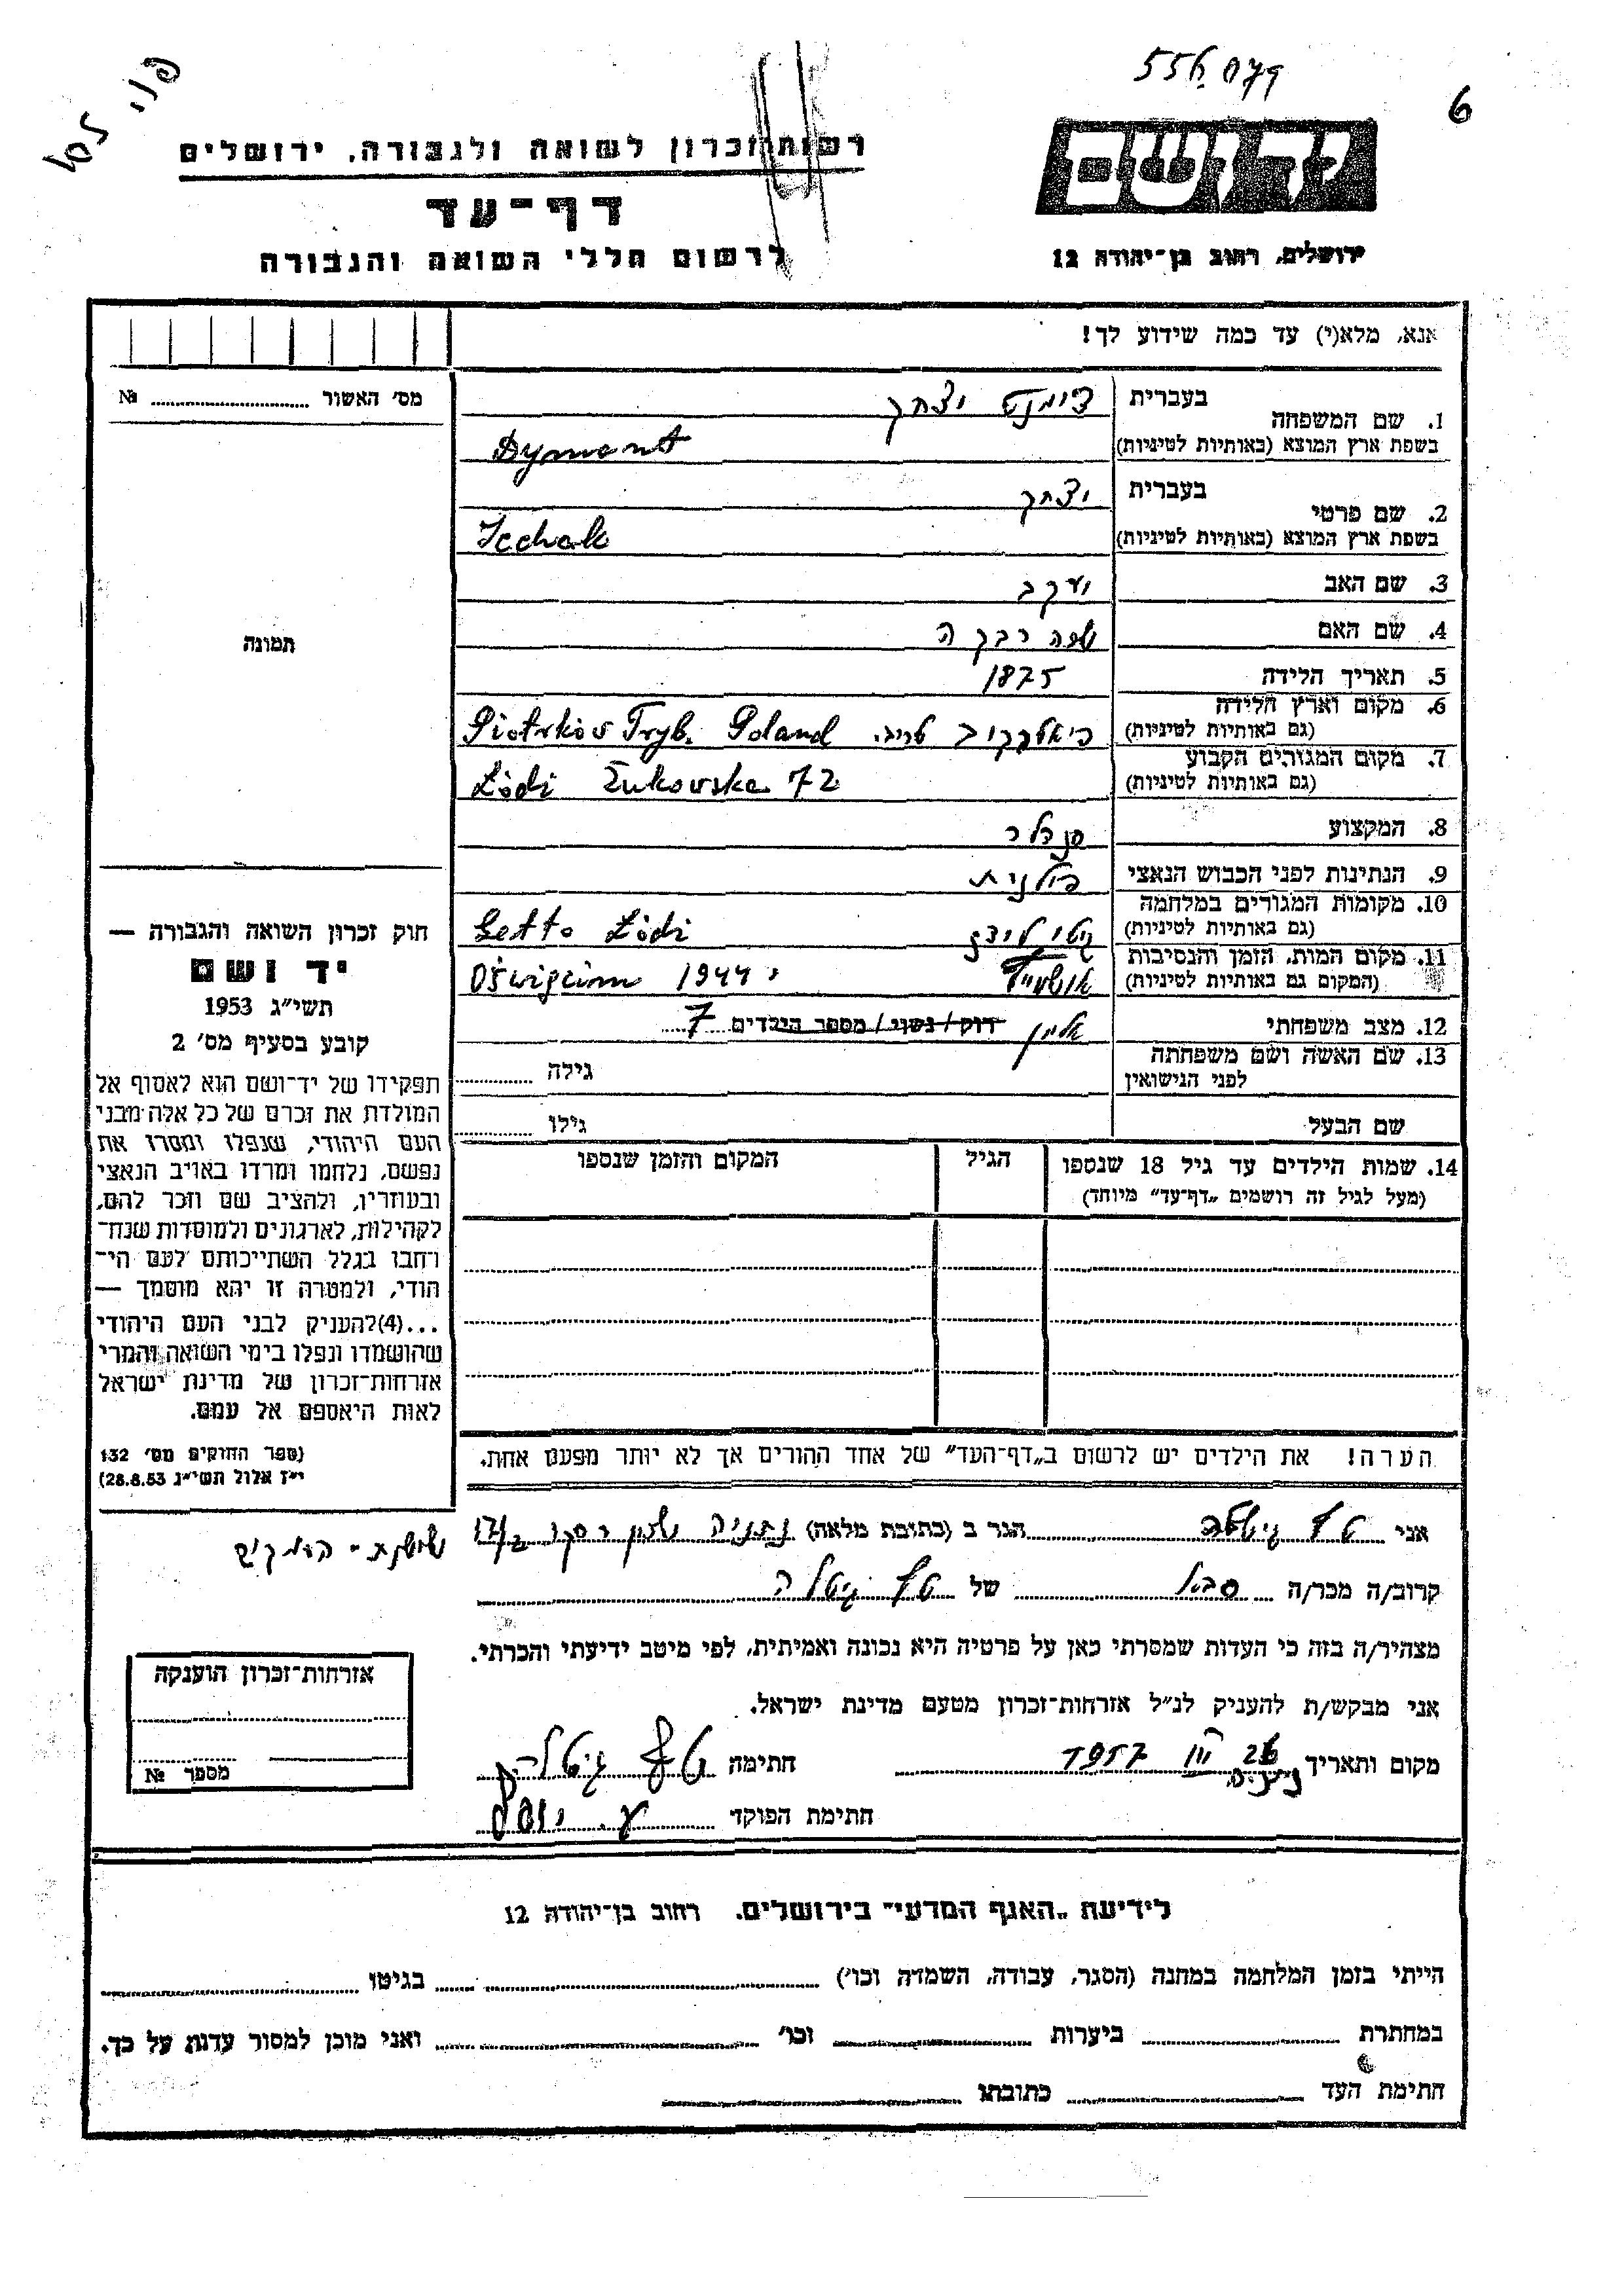 556.079
6
רשות זכרון לשואה ולגבורה, ירושלים
יד ושם
דף-עד
לרשום חללי השואה והגבורה
ירושלים, רחוב בן-יהודה 12
אנא, מלא(י) עד כמה שידוע לך!
מס' האשור № 
1. שם המשפחה בעברית דימנט יצחק
בשפת ארץ המוצא (באותיות לטיניות) Dymant
2. שם פרטי בעברית יצחק
בשפת ארץ המוצא (באותיות לטיניות) Icchak
3. שם האב יעקב
4. שם האם רבקה
5. תאריך הלידה 1875
6. מקום וארץ הלידה (גם באותיות לטיניות) פיאטרקוב טריב. Piotrków Tryb. Poland
7. מקום המגורים הקבוע (גם באותיות לטיניות) Łódź Żukowska 72
8. המקצוע סנדלר
9. הנתינות לפני הכבוש הנאצי פולנית
10. מקומות המגורים במלחמה (גם באותיות לטיניות) גטו לודז Getto Łódź
11. מקום המות, הזמן והנסיבות (המקום גם באותיות לטיניות) Oświęcim 1944
12. מצב משפחתי אלמן רווק / נשוי / מספר הילדים 7
13. שם האשה ושם משפחתה לפני הנישואין גילה
שם הבעל גילו
14. שמות הילדים עד גיל 18 שנספו
(מעל לגיל זה רושמים „דף-עד" מיוחד)
הגיל
המקום והזמן שנספו
הערה! את הילדים יש לרשום ב„דף-העד" של אחד ההורים אך לא יותר מפעם אחת.
תמונה
חוק זכרון השואה והגבורה —
יד ושם
תשי"ג 1953
קובע בסעיף מס' 2
תפקידו של יד-ושם הוא לאסוף אל
המולדת את זכרם של כל אלה מבני
העם היהודי, שנפלו ומסרו את
נפשם, נלחמו ומרדו באויב הנאצי
ובעוזריו, ולהציב שם וזכר להם,
לקהילות, לארגונים ולמוסדות שנח-
רחבו בגלל השתייכותם לעם הי-
הודי, ולמטרה זו יהא מוסמך —
...(4)להעניק לבני העם היהודי
שהושמדו ונפלו בימי השואה והמרי
אזרחות-זכרון של מדינת ישראל
לאות היאספם אל עמם.
(ספר החוקים מס' 132
י"ז אלול תשי"ג 28.8.53)
אני גיטלה הגר ב (כתובת מלאה) נתניה
קרוב/ה מכר/ה של גיטלה
מצהיר/ה בזה כי העדות שמסרתי כאן על פרטיה היא נכונה ואמיתית, לפי מיטב ידיעתי והכרתי.
אני מבקש/ת להעניק לנ"ל אזרחות-זכרון מטעם מדינת ישראל.
מקום ותאריך 1957 חתימה גיטלה
חתימת הפוקד
אזרחות-זכרון הוענקה
מספר №
לידיעת „האגף המדעי" בירושלים, רחוב בן-יהודה 12
הייתי בזמן המלחמה במחנה (הסגר, עבודה, השמדה וכו') בגיטו
במחתרת ביערות וכו' ואני מוכן למסור עדות על כך.
חתימת העד כתובתו